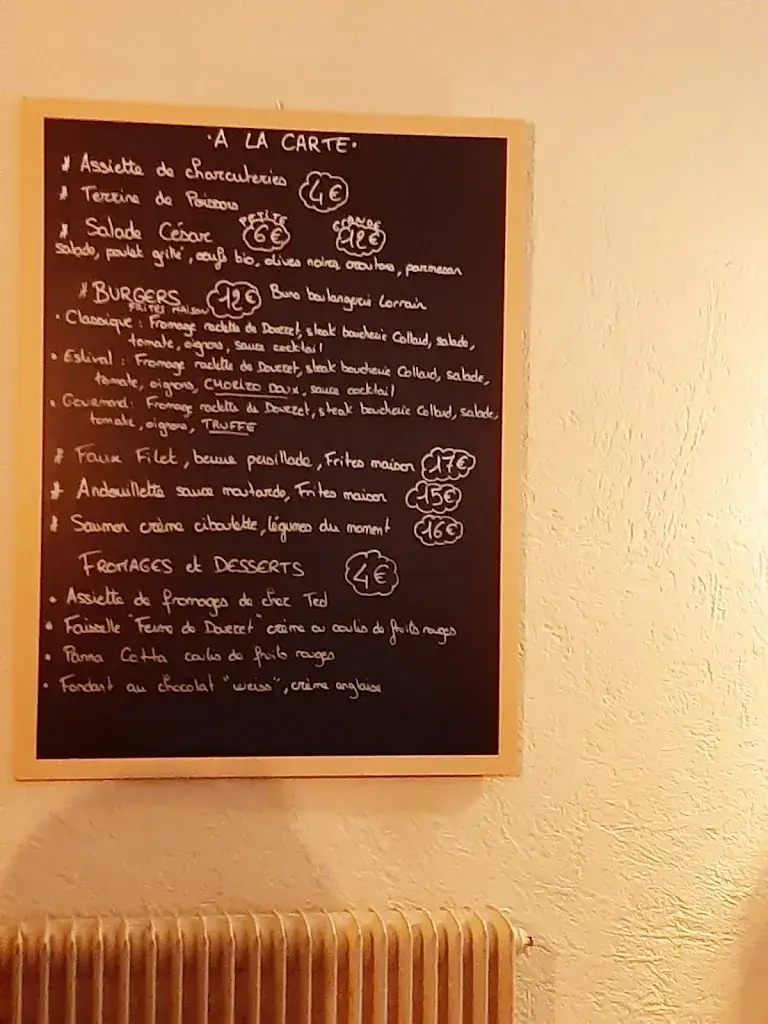 · A LA CARTE ·
* Assiette de charcuteries
* Terrine de Poissons 4€
PETITE GRANDE
* Salade César 6€ 12€
salade, poulet grillé, œufs bio, olives noires, croutons, parmesan
* BURGERS 12€ Buns boulangerie Lorrain
FRITES MAISON
• Classique : Fromage raclette de Davezet, steak boucherie Collaud, salade,
tomate, oignons, sauce cocktail
• Estival : Fromage raclette de Davezet, steak boucherie Collaud, salade,
tomate, oignons, CHORIZO DOUX, sauce cocktail
• Gourmand : Fromage raclette de Davezet, steak boucherie Collaud, salade,
tomate, oignons, TRUFFE
* Faux Filet, beurre persillade, Frites maison 17€
* Andouillette sauce moutarde, Frites maison 15€
* Saumon crème ciboulette, légumes du moment 16€
FROMAGES et DESSERTS 4€
• Assiette de fromages de chez Ted
• Faisselle "Ferme de Davezet" crème ou coulis de fruits rouges
• Panna Cotta coulis de fruits rouges
• Fondant au chocolat "weiss", crème anglaise